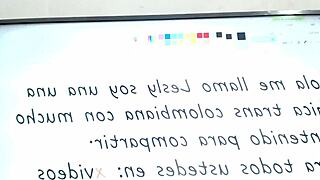 ola me llamo Lesly soy una una
ica trans colombiana con mucho
ntenido para compartir.
a todos ustedes en: xvideos